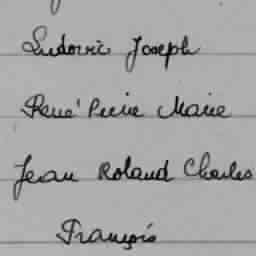 Ludovic Joseph
René Pierre Marie
Jean Roland Charles
François